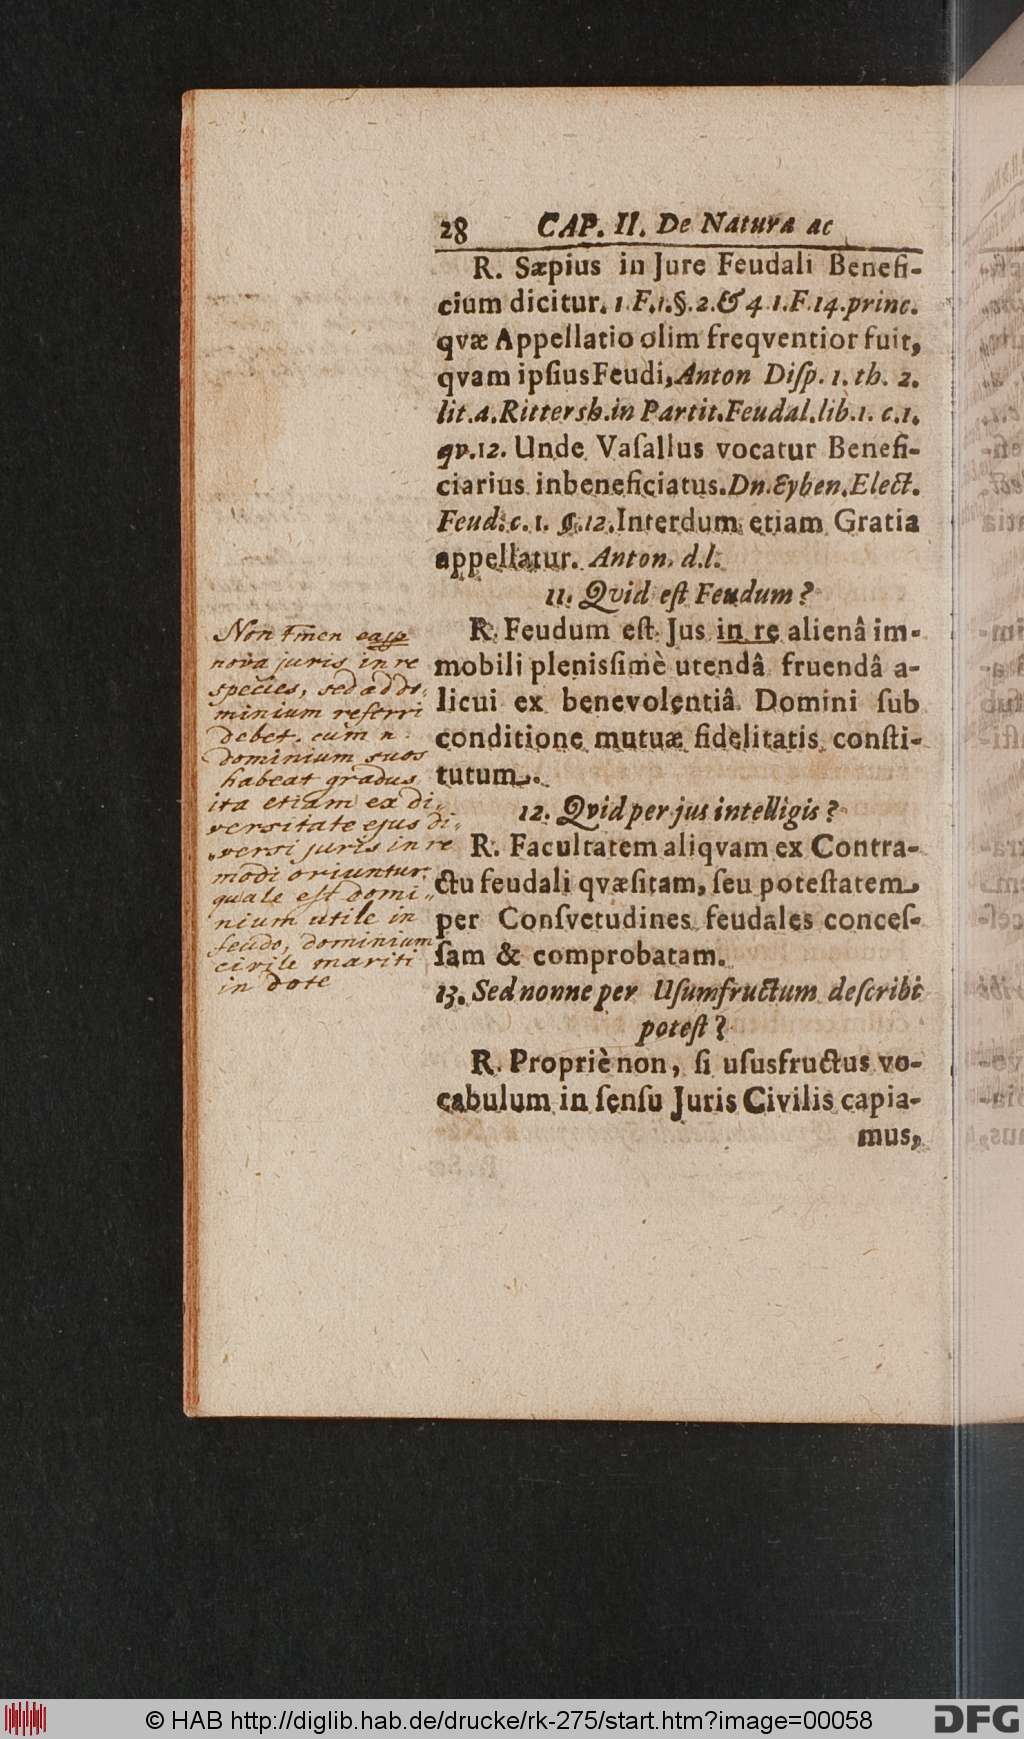 28 CAP. II. De Natura ac
R. Sæpius in Jure Feudali Benefi-
cium dicitur. 1.F.1.§.2.& 4 1.F.14.princ.
qvæ Appellatio olim freqventior fuit,
qvam ipſius Feudi, Anton Diſp. 1. th. 2.
lit.a.Rittersh.in Partit.Feudal.lib.1. c.1.
qv.12. Unde Vaſallus vocatur Benefi-
ciarius inbeneficiatus. Dn.Eyben.Elect.
Feud.c. 1. §.12. Interdum etiam Gratia
appellatur. Anton. d.l.
11. Qvid eſt Feudum?
R. Feudum eſt Jus in re alienâ im-
mobili plenisſimè utendâ fruendâ a-
licui ex benevolentiâ Domini ſub
conditione mutuæ fidelitatis conſti-
tutum.
12. Qvid per jus intelligis?
R. Facultatem aliqvam ex Contra-
ctu feudali qvæſitam, ſeu poteſtatem
per Conſvetudines feudales conceſ-
ſam & comprobatam.
13. Sed nonne per Uſumfructum deſcribi
poteſt?
R. Propriè non, ſi uſusfructus vo-
cabulum in ſenſu Juris Civilis capia-
mus,
Non tmen
nova juris in re
species, sed ad do,,
minium referri
debet. cum n.
dominium suos
habeat gradus
ita etiam ex di,,
versitate ejus di,,
,,versi juris in re
modi oriuntur:
quale est domi,,
nium utile in
feudo, dominium
civile mariti
in dote
© HAB http://diglib.hab.de/drucke/rk-275/start.htm?image=00058
DFG